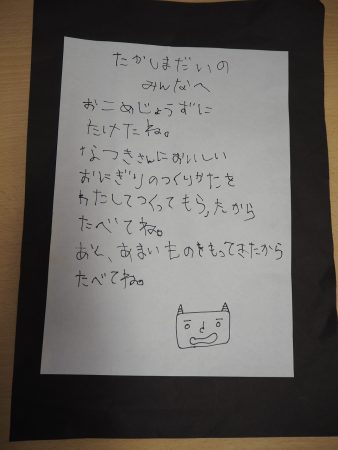 たかしまだいの
みんなへ
おこめじょうずに
たけたね。
なつきさんにおいしい
おにぎりのつくりかたを
わたしてつくってもらったから
たべてね。
あと、あまいものをもってきたから
たべてね。